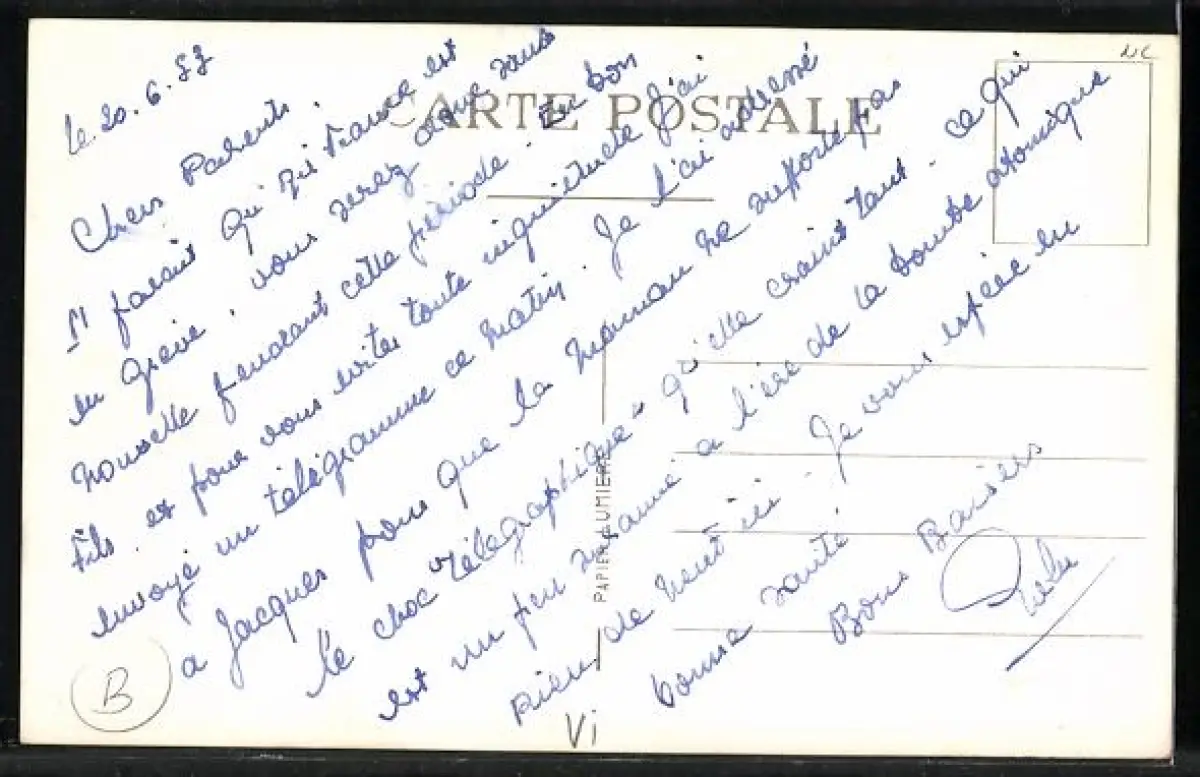 le 20.6.
CARTE POSTALE
Chers Parents.
Il parait France est
en Grève. vous serez donc sans
nouvelle pendant cette période. En bon
fils. et pour vous eviter toute inquiétude j'ai
envoyé un télégramme ce matin. Je l'ai adressé
a Jacques pour que la Maman ne supporte pas
le choc "télégraphique" qu'elle craint tant. ce qui
est un peu suranné a l'ère de la bombe atomique
Rien de neuf ici. Je vous espère en
bonne santé
Bons Baisers
PAPIER LUMIERE
B
Vi